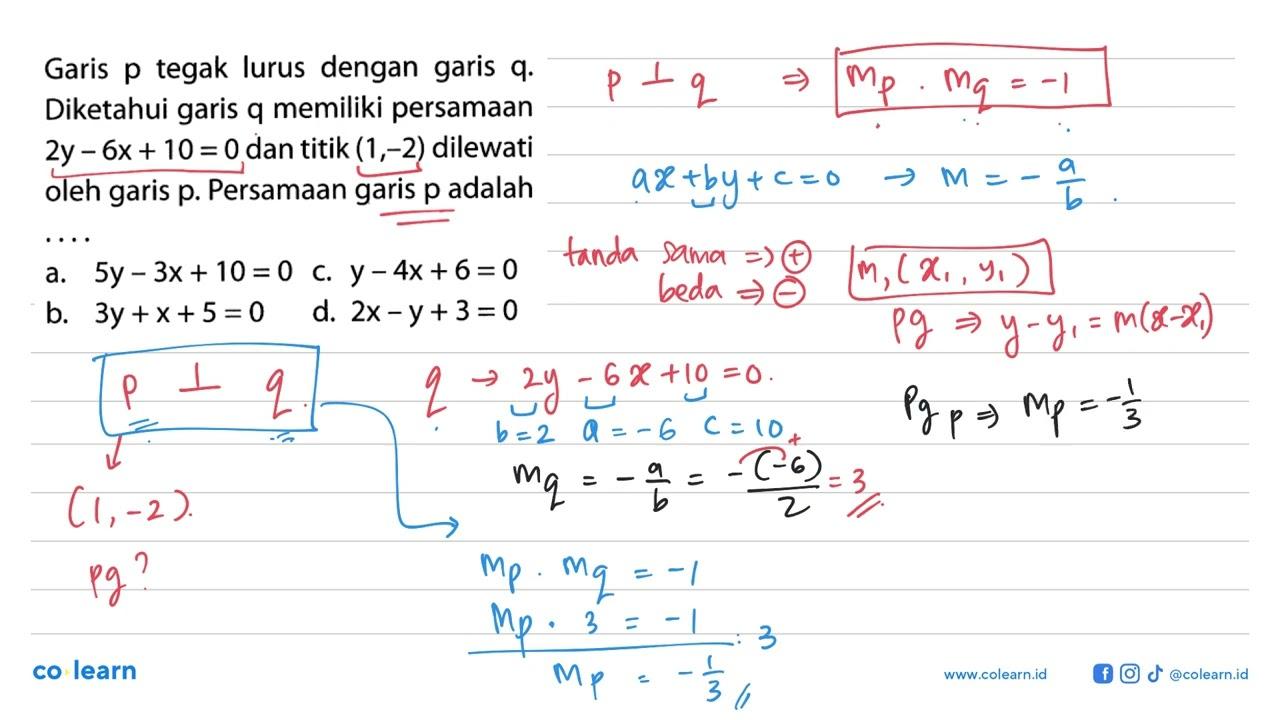 Garis p tegak lurus dengan garis q.
Diketahui garis q memiliki persamaan
2y – 6x + 10 = 0 dan titik (1,–2) dilewati
oleh garis p. Persamaan garis p adalah
....
a. 5y – 3x + 10 = 0 c. y – 4x + 6 = 0
b. 3y + x + 5 = 0 d. 2x – y + 3 = 0
p ⊥ q ⇒ mp . mq = -1
ax + by + c = 0 → m = - a/b .
tanda sama ⇒ (+)
beda ⇒ (-)
m, (x₁, y₁)
pg ⇒ y - y₁ = m(x - x₁)
p ⊥ q
(1, -2).
pg?
q → 2y - 6x + 10 = 0.
b = 2 a = -6 c = 10
mq = - a/b = - (-6)/2 = 3
+
mp . mq = -1
mp . 3 = -1
: 3
mp = - 1/3
Pg p ⇒ mp = - 1/3
co learn
www.colearn.id
@colearn.id